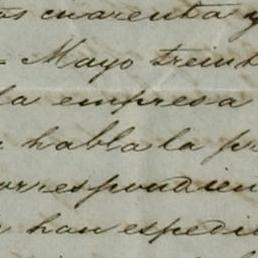 os cuarenta y
Mayo treint
la empresa
habla la pr
orrespondien
han espedi